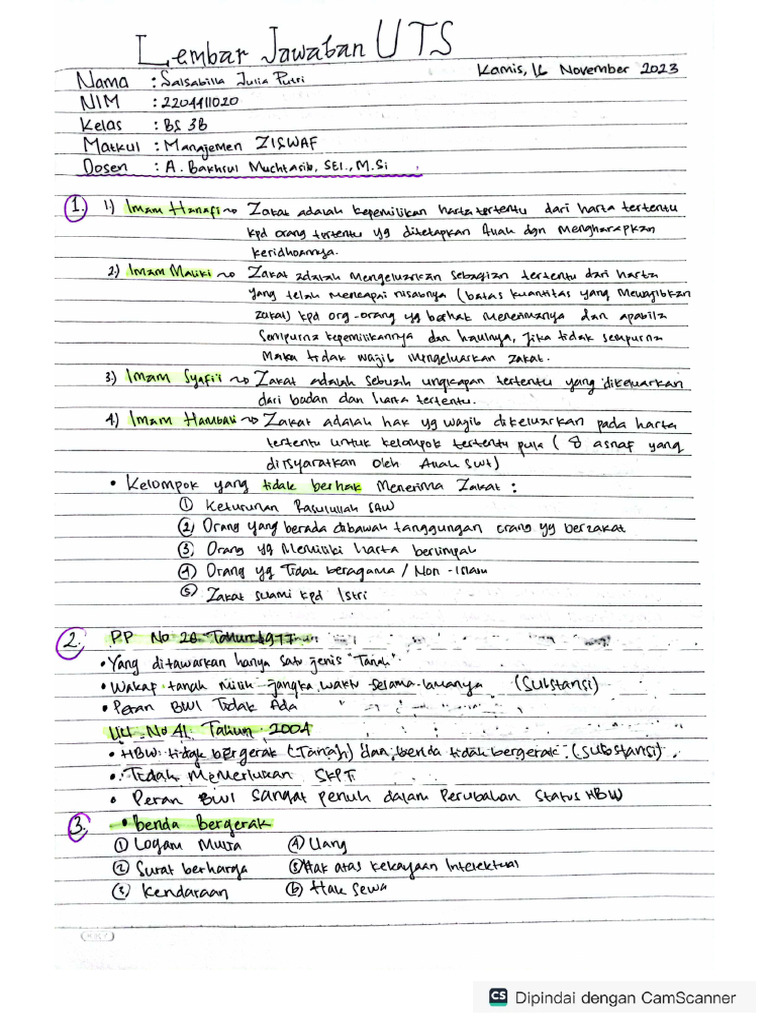 Lembar Jawaban UTS
Kamis, 16 November 2023
Nama : Salsabilla Julia Putri
NIM : 2204411020
Kelas : BS 3B
Matkul : Manajemen ZISWAF
Dosen : A. Bakhrul Muchtasib, SEI., M.Si
1. 1) Imam Hanafi ~> Zakat adalah kepemilikan harta tertentu dari harta tertentu
kpd orang tertentu yg ditetapkan Allah dgn mengharapkan
keridhoannya.
2) Imam Maliki ~> Zakat adalah mengeluarkan sebagian tertentu dari harta
yang telah mencapai nisabnya (batas kuantitas yang mewajibkan
zakat) kpd org-orang yg berhak menerimanya dan apabila
sempurna kepemilikannya dan haulnya, jika tidak sempurna
maka tidak wajib mengeluarkan zakat.
3) Imam Syafi'i ~> Zakat adalah sebuah ungkapan tertentu yang dikeluarkan
dari badan dan harta tertentu.
4) Imam Hambali ~> Zakat adalah hak yg wajib dikeluarkan pada harta
tertentu untuk kelompok tertentu pula ( 8 asnaf yang
diisyaratkan oleh Allah SWT)
• Kelompok yang tidak berhak menerima zakat :
① Keturunan Rasulullah SAW
② Orang yang berada dibawah tanggungan orang yg berzakat
③ Orang yg memiliki harta berlimpah
④ Orang yg Tidak beragama / Non-Islam
⑤ Zakat suami kpd Istri
2. PP No 28 Tahun 1977
• Yang ditawarkan hanya satu jenis "Tanah"
• Wakaf tanah milik jangka waktu selama-lamanya (Substansi)
• Peran BWI Tidak Ada
UU No 41 Tahun 2004
• HBW: tidak bergerak (Tanah) dan benda tidak bergerak (Substansi).
• Tidak memerlukan SKPT
• Peran BWI sangat penuh dalam Perubahan Status HBW
3. • benda Bergerak
① Logam Mulia ④ Uang
② Surat berharga ⑤ Hak atas kekayaan Intelektual
③ Kendaraan ⑥ Hak Sewa
CS Dipindai dengan CamScanner